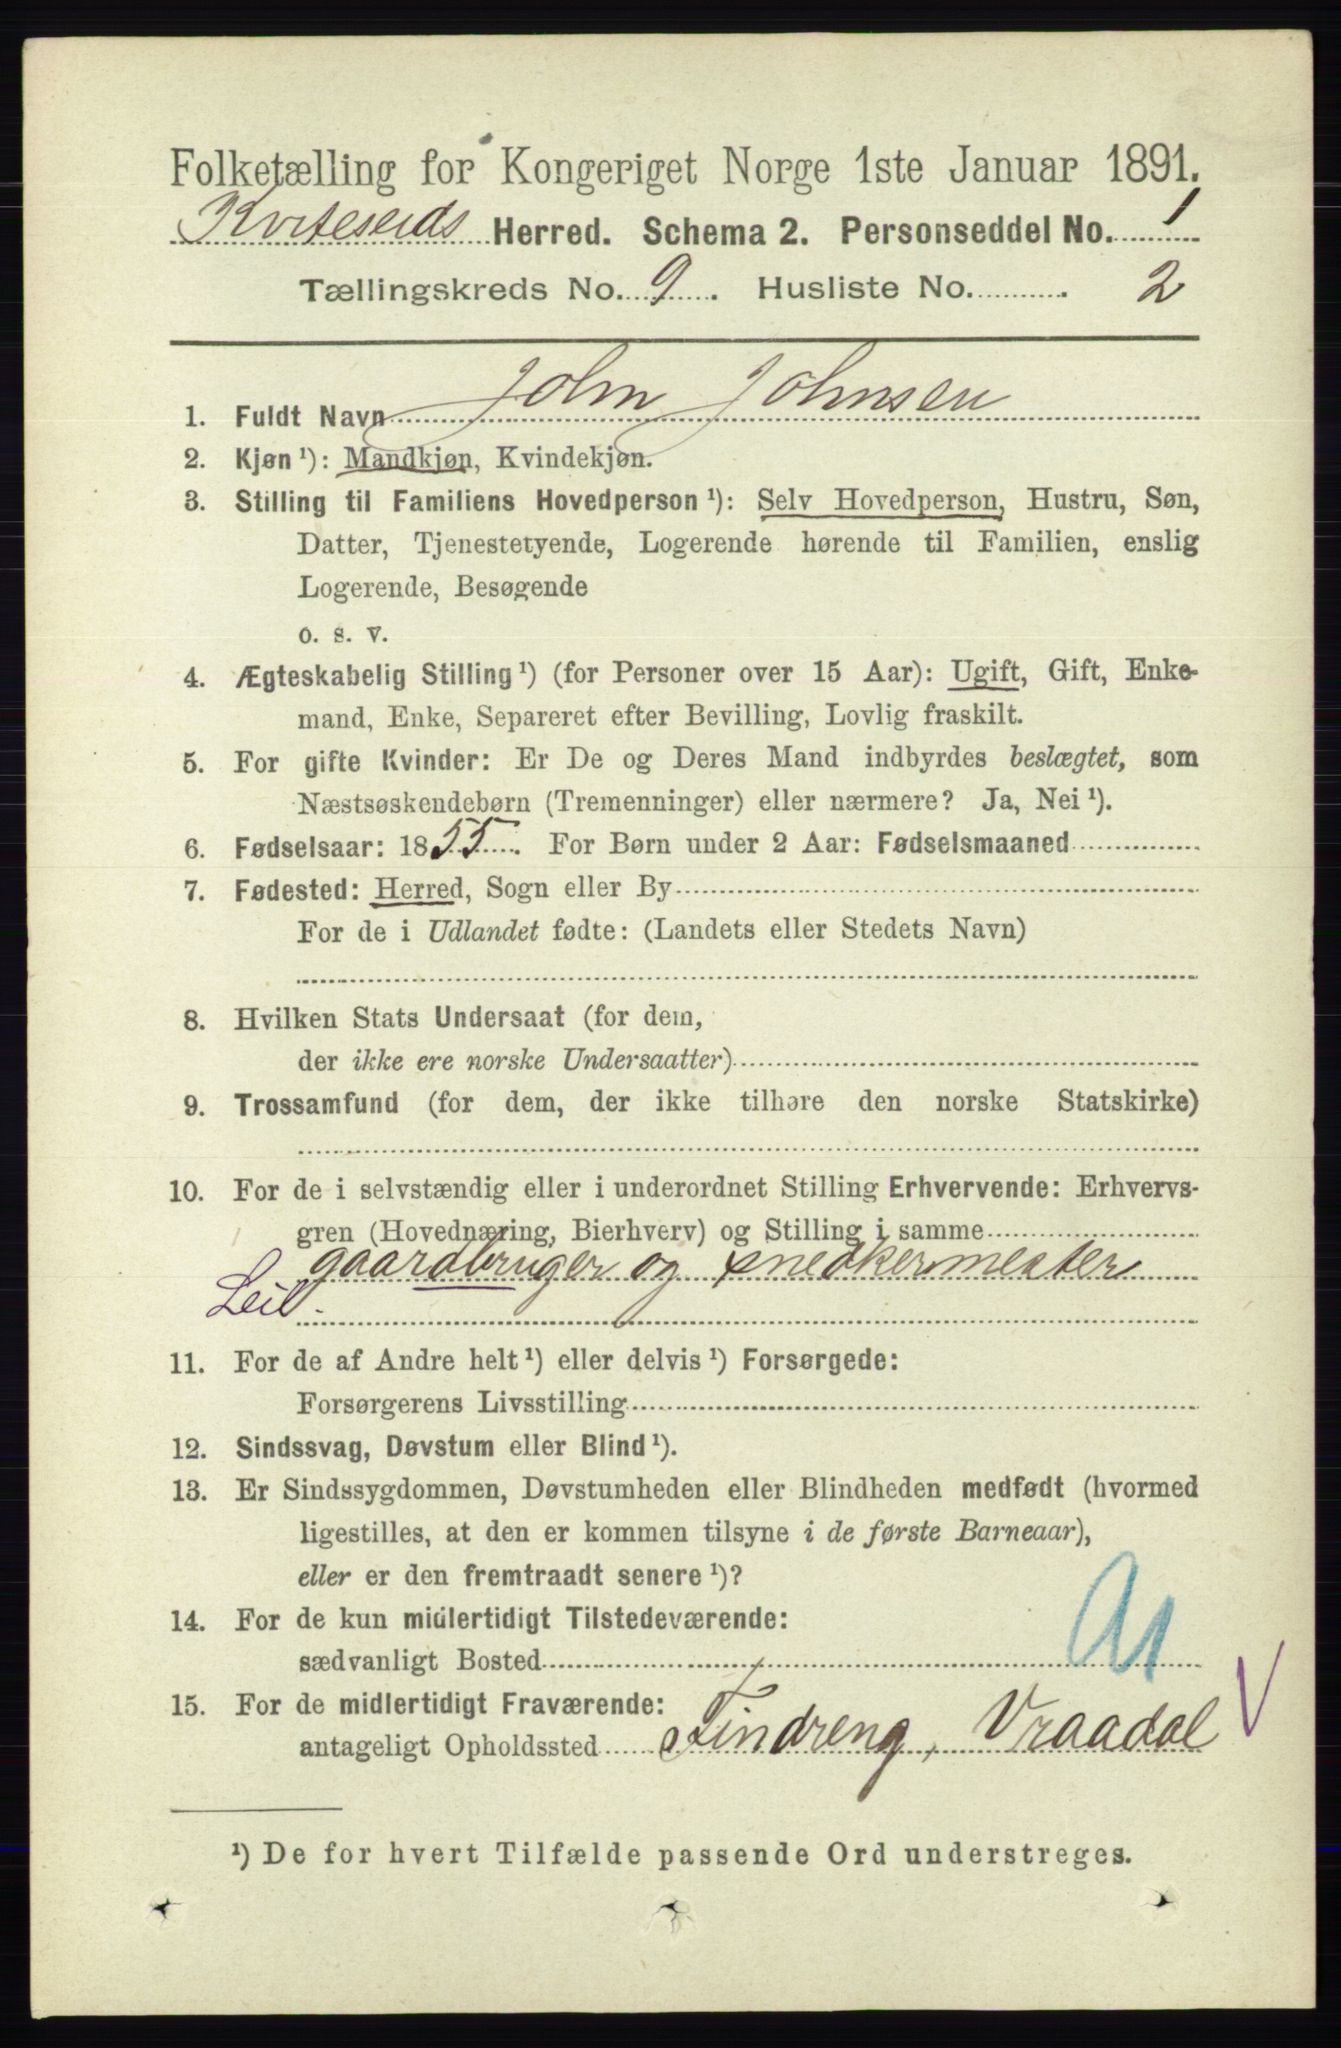 Folketælling for Kongeriget Norge 1ste Januar 1891.
Kviteseids Herred. Schema 2. Personseddel No. 1
Tællingskreds No. 9. Husliste No. 2
1. Fuldt Navn John Johnsen
2. Kjøn ¹): Mandkjøn, Kvindekjøn.
3. Stilling til Familiens Hovedperson ¹): Selv Hovedperson, Hustru, Søn,
Datter, Tjenestetyende, Logerende hørende til Familien, enslig
Logerende, Besøgende
o. s. v.
4. Ægteskabelig Stilling ¹) (for Personer over 15 Aar): Ugift, Gift, Enke-
mand, Enke, Separeret efter Bevilling, Lovlig fraskilt.
5. For gifte Kvinder: Er De og Deres Mand indbyrdes beslægtet, som
Næstsøskendebørn (Tremenninger) eller nærmere? Ja, Nei ¹).
6. Fødselsaar: 1855. For Børn under 2 Aar: Fødselsmaaned
7. Fødested: Herred, Sogn eller By
For de i Udlandet fødte: (Landets eller Stedets Navn)
8. Hvilken Stats Undersaat (for dem,
der ikke ere norske Undersaatter)
9. Trossamfund (for dem, der ikke tilhøre den norske Statskirke)
10. For de i selvstændig eller i underordnet Stilling Erhvervende: Erhvervs-
gren (Hovednæring, Bierhverv) og Stilling i samme
gaardbruger og snedkermester
Leil.
11. For de af Andre helt ¹) eller delvis ¹) Forsørgede:
Forsørgerens Livsstilling
12. Sindssvag, Døvstum eller Blind ¹).
13. Er Sindssygdommen, Døvstumheden eller Blindheden medfødt (hvormed
ligestilles, at den er kommen tilsyne i de første Barneaar),
eller er den fremtraadt senere ¹)?
14. For de kun midlertidigt Tilstedeværende:
sædvanligt Bosted
15. For de midlertidigt Fraværende:
antageligt Opholdssted Findreng, Vraadal
¹) De for hvert Tilfælde passende Ord understreges.